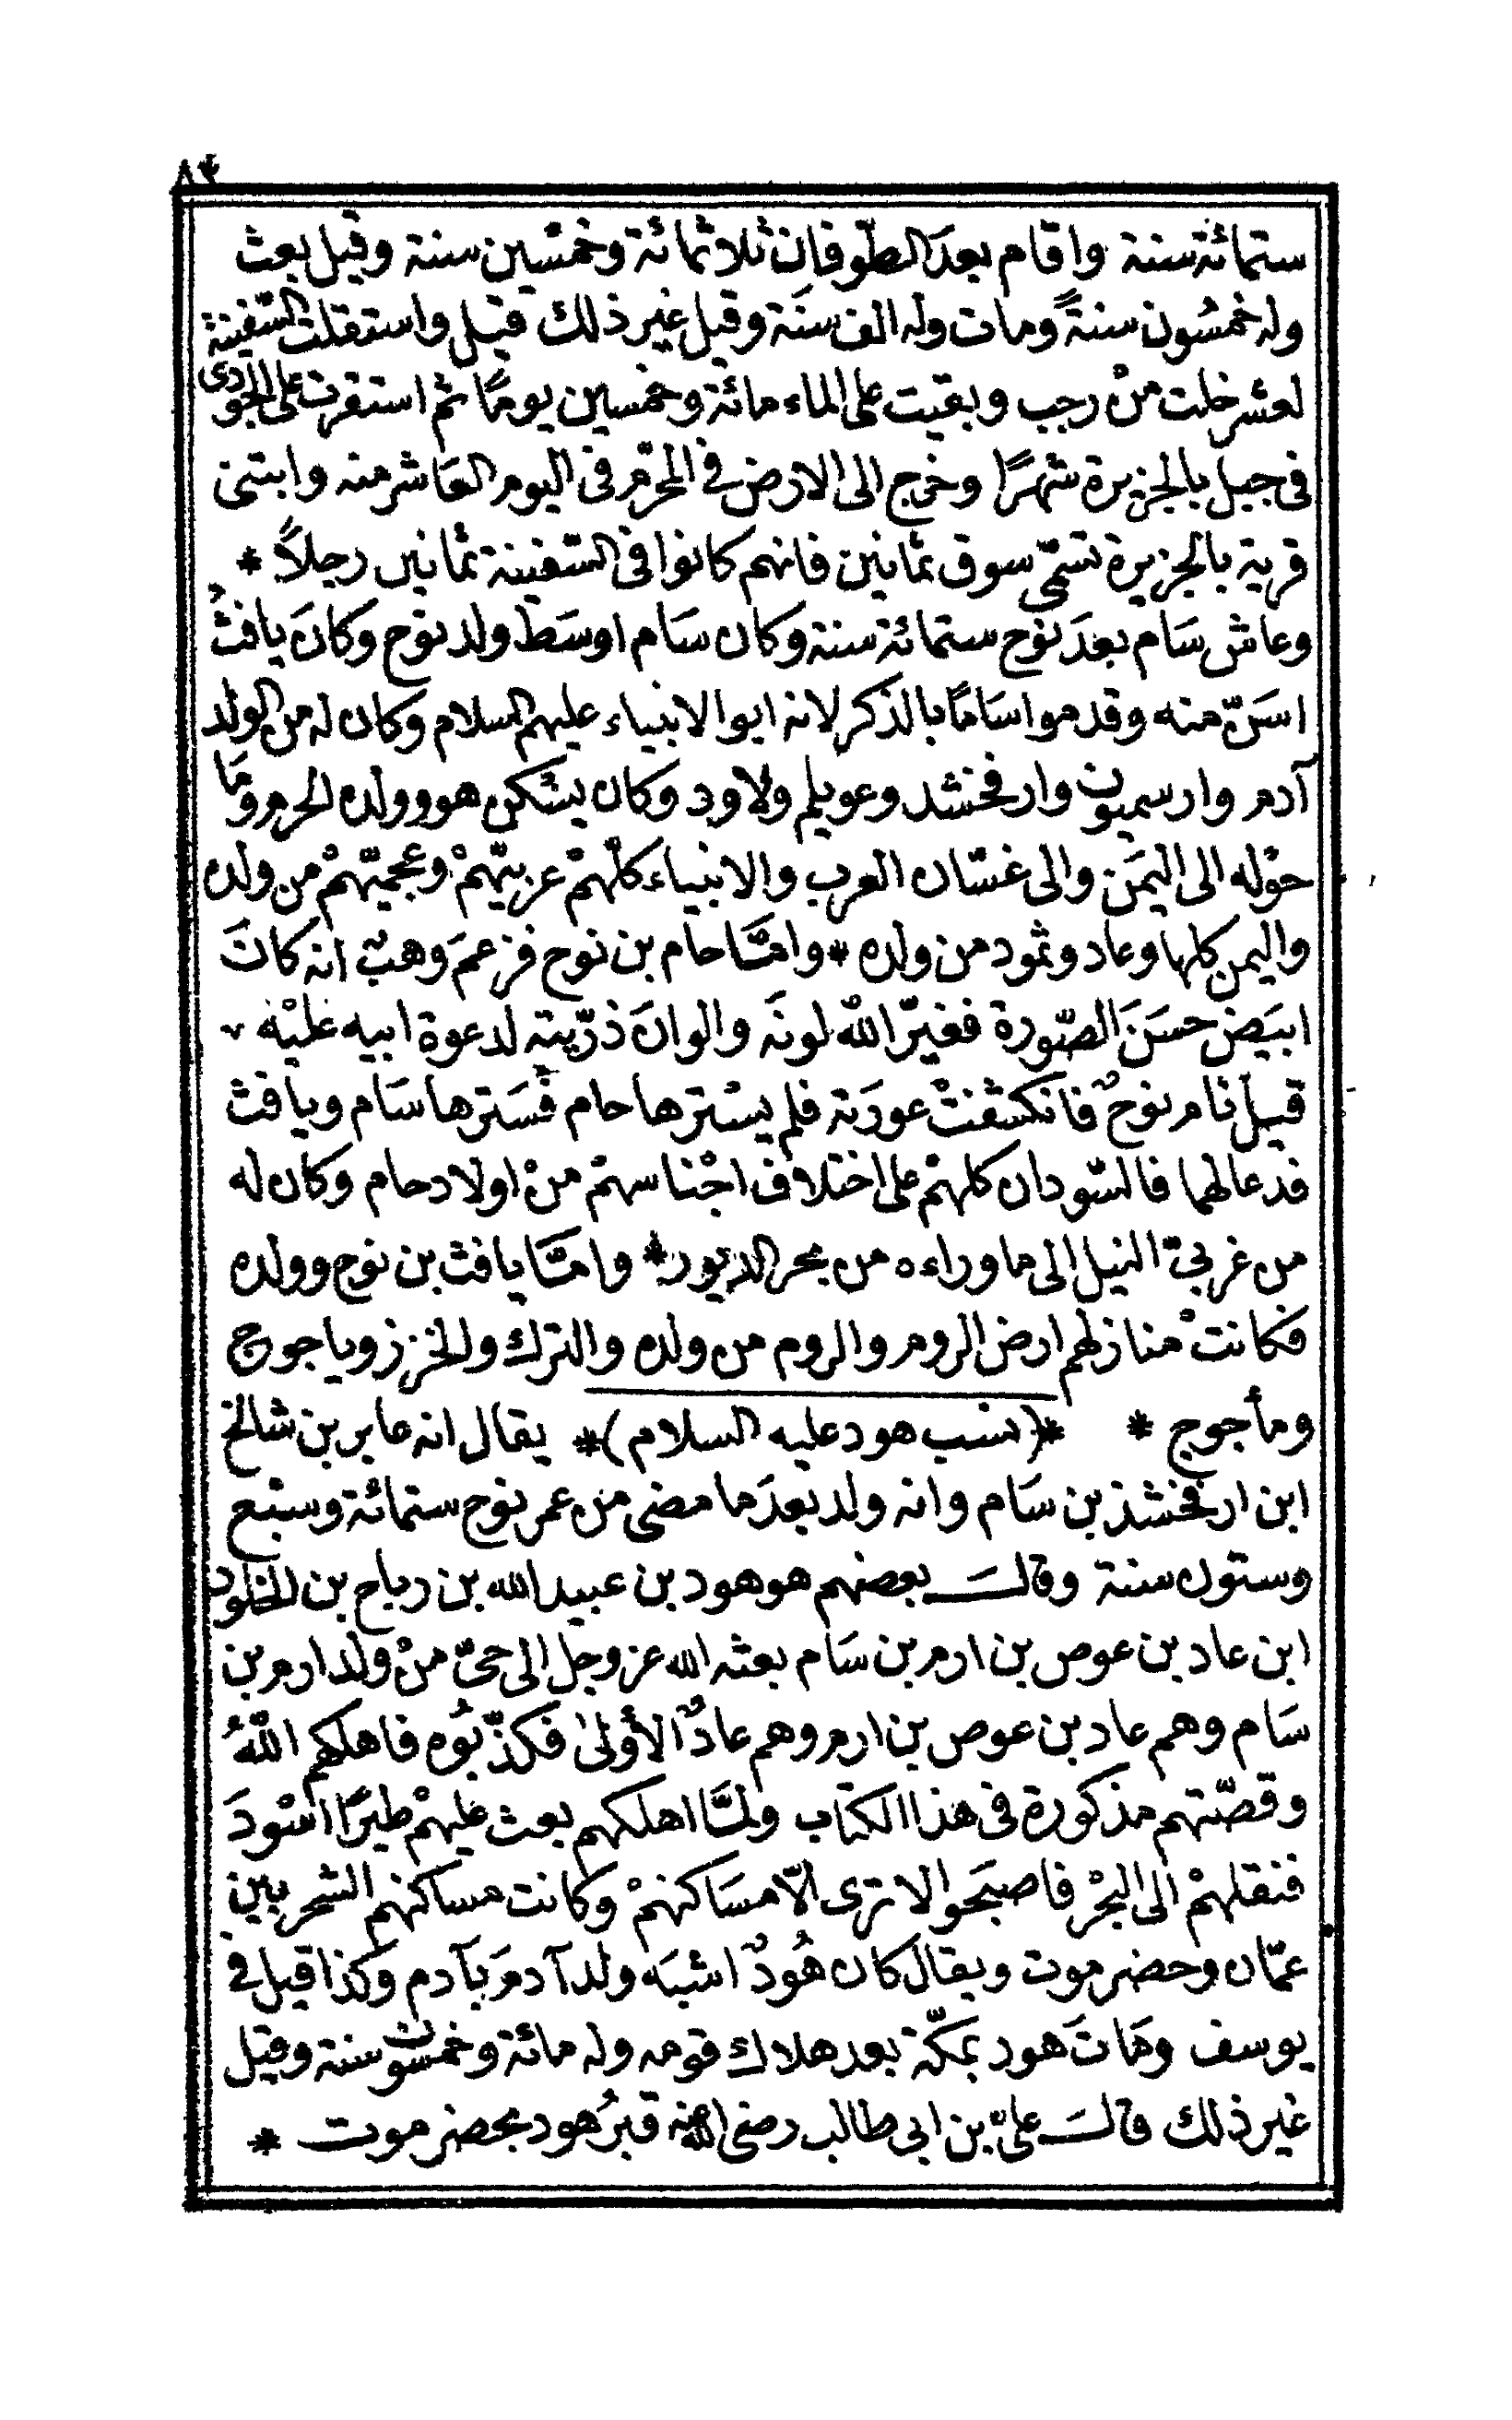 ٨٣
ستمائة سنة واقام بعدَ الطّوفان ثلاثمائة وخمسين سنة وقيل بعث
وله خمسُون سنةً ومات وله الف سنَة وقيل غير ذلك قيل واستقلت السّفينة
لعشر خلت منْ رجب وبقيت على الماء مائة وخمسين يومًا ثم استقرت على الجودى
فى جبل بالجزيرة شهرًا وخرج الى الارض في المحرّم فى اليوم العَاشر منه وابتنى
قرية بالجزيرة تسمّى سوق ثمانين فانهم كانوا فى السّفينة ثمانين رجلاً *
وعاش سَام بعدَ نوح ستمائة سنة وكان سَام اوسَط ولد نوح وكانَ يافثُ
اسَنّ منه وقدموا سَامًا بالذكر لانه ابو الانبياء عليهم السلام وكان له من الولد
آدم وارسميون وارفخشد وعويلم ولاود وكان يسْكن هو وولده الحرم ومَا
حوْله الى اليمَن والى غسّان العرب والانبياء كلّهمْ عربيّهمْ وعجميّهمْ من ولده
واليمن كلها وعاد وثمود من ولده * وامّا حام بن نوح فزعمَ وهبٌ انه كانَ
ابيَض حسَنَ الصّورة فغيّر اللهُ لونَه والوانَ ذرّيته لدعوة ابيه عليْه
قيل نام نوحٌ فانكشفتْ عورَته فلم يسْترها حام فسَترها سَام ويافث
فدعا لهما فالسّودان كلهمْ على اختلاف اجْناسهمْ منْ اولاد حام وكان له
من غربىّ النيل الى ما وراءه من بحر الدبور * وامّا يافث بن نوح وولده
فكانتْ منازلهم ارض الروم والروم من ولده والترك والخزر وياجوج
ومأجوج * *( نسب هود عليه السلام )* يقال انه عابر بن شالخ
ابن ارفخشذ بن سَام وانه ولد بعدَ ما مضى من عمر نوح ستمائة وسبْع
وستون سنة وقالَ بعضهم هو هود بن عبيد الله بن رباح بن الخلود
ابن عاد بن عوص بن ارم بن سَام بعثه الله عز وجل الى حىّ منْ ولد ارم بن
سَام وهم عاد بن عوص بن ارم وهم عادٌ الأولىٰ فكذّبُوه فاهلكهم اللهُ
وقصّتهم مذكورة فى هذا الكتاب ولمّا اهلكهم بعث عليهمْ طيرًا اسْودَ
فنقلهمْ الى البحْر فاصبَحوا لا ترى الّا مسَاكنهمْ وكانت مساكنهم الشحر بين
عمّان وحضرموت ويقال كان هُودٌ اشبَه ولد آدمَ بآدم وكذا قيل في
يوسف ومَاتَ هود بمكّة بعد هلاك قومه وله مائة وخمسون سنة وقيل
غير ذلك قالَ علىّ بن ابى طالب رضى الله عنه قبرُ هود بحضرموت *